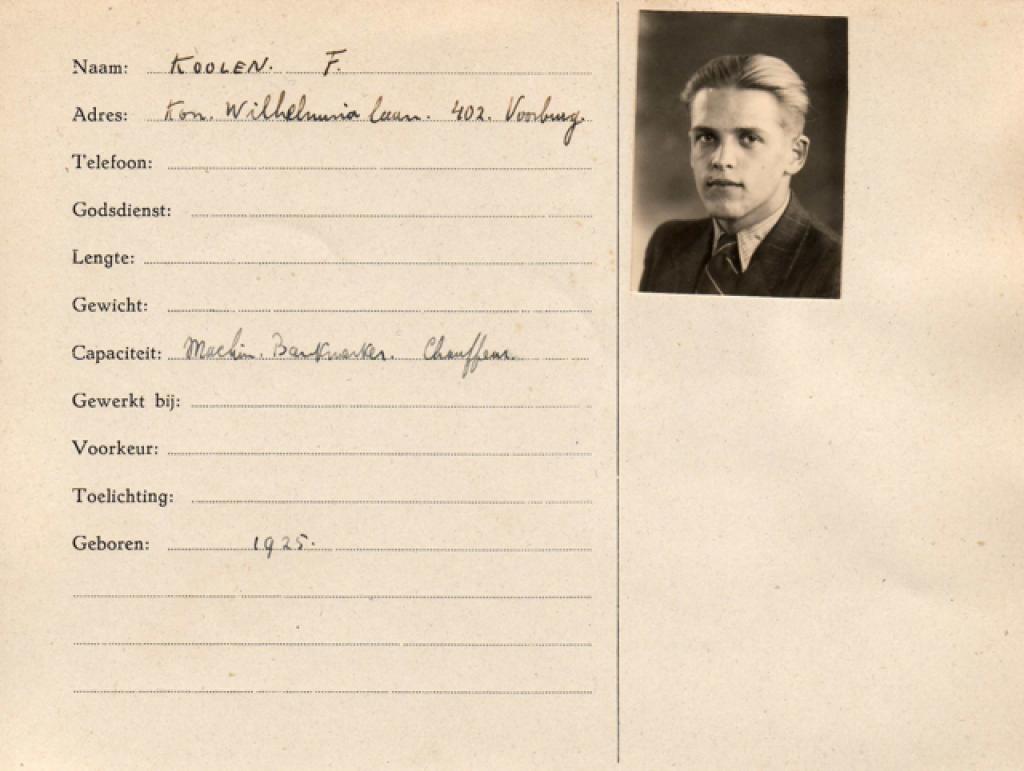 Naam: KOOLEN. F.
Adres: Kon. Wilhelmina laan. 402. Voorburg.
Telefoon:
Godsdienst:
Lengte:
Gewicht:
Capaciteit: Machin. Bankwerker. Chauffeur.
Gewerkt bij:
Voorkeur:
Toelichting:
Geboren: 1925.